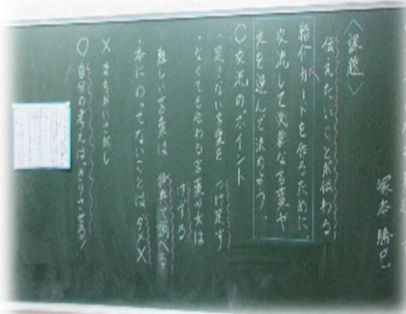 塚本 勝巳
〈課題〉
伝えたいことが伝わる
紹介カードを作るために
交流して必要な言葉や
文を選んで決めよう。
○交流のポイント
・足りない言葉を つけ足す
・なくても伝わる言葉や文は
けずる
難しい言葉は 辞典で調べる
・本にのってないことは ダメ×
×まちがいさがし
○自分の考えをはっきりさせる!